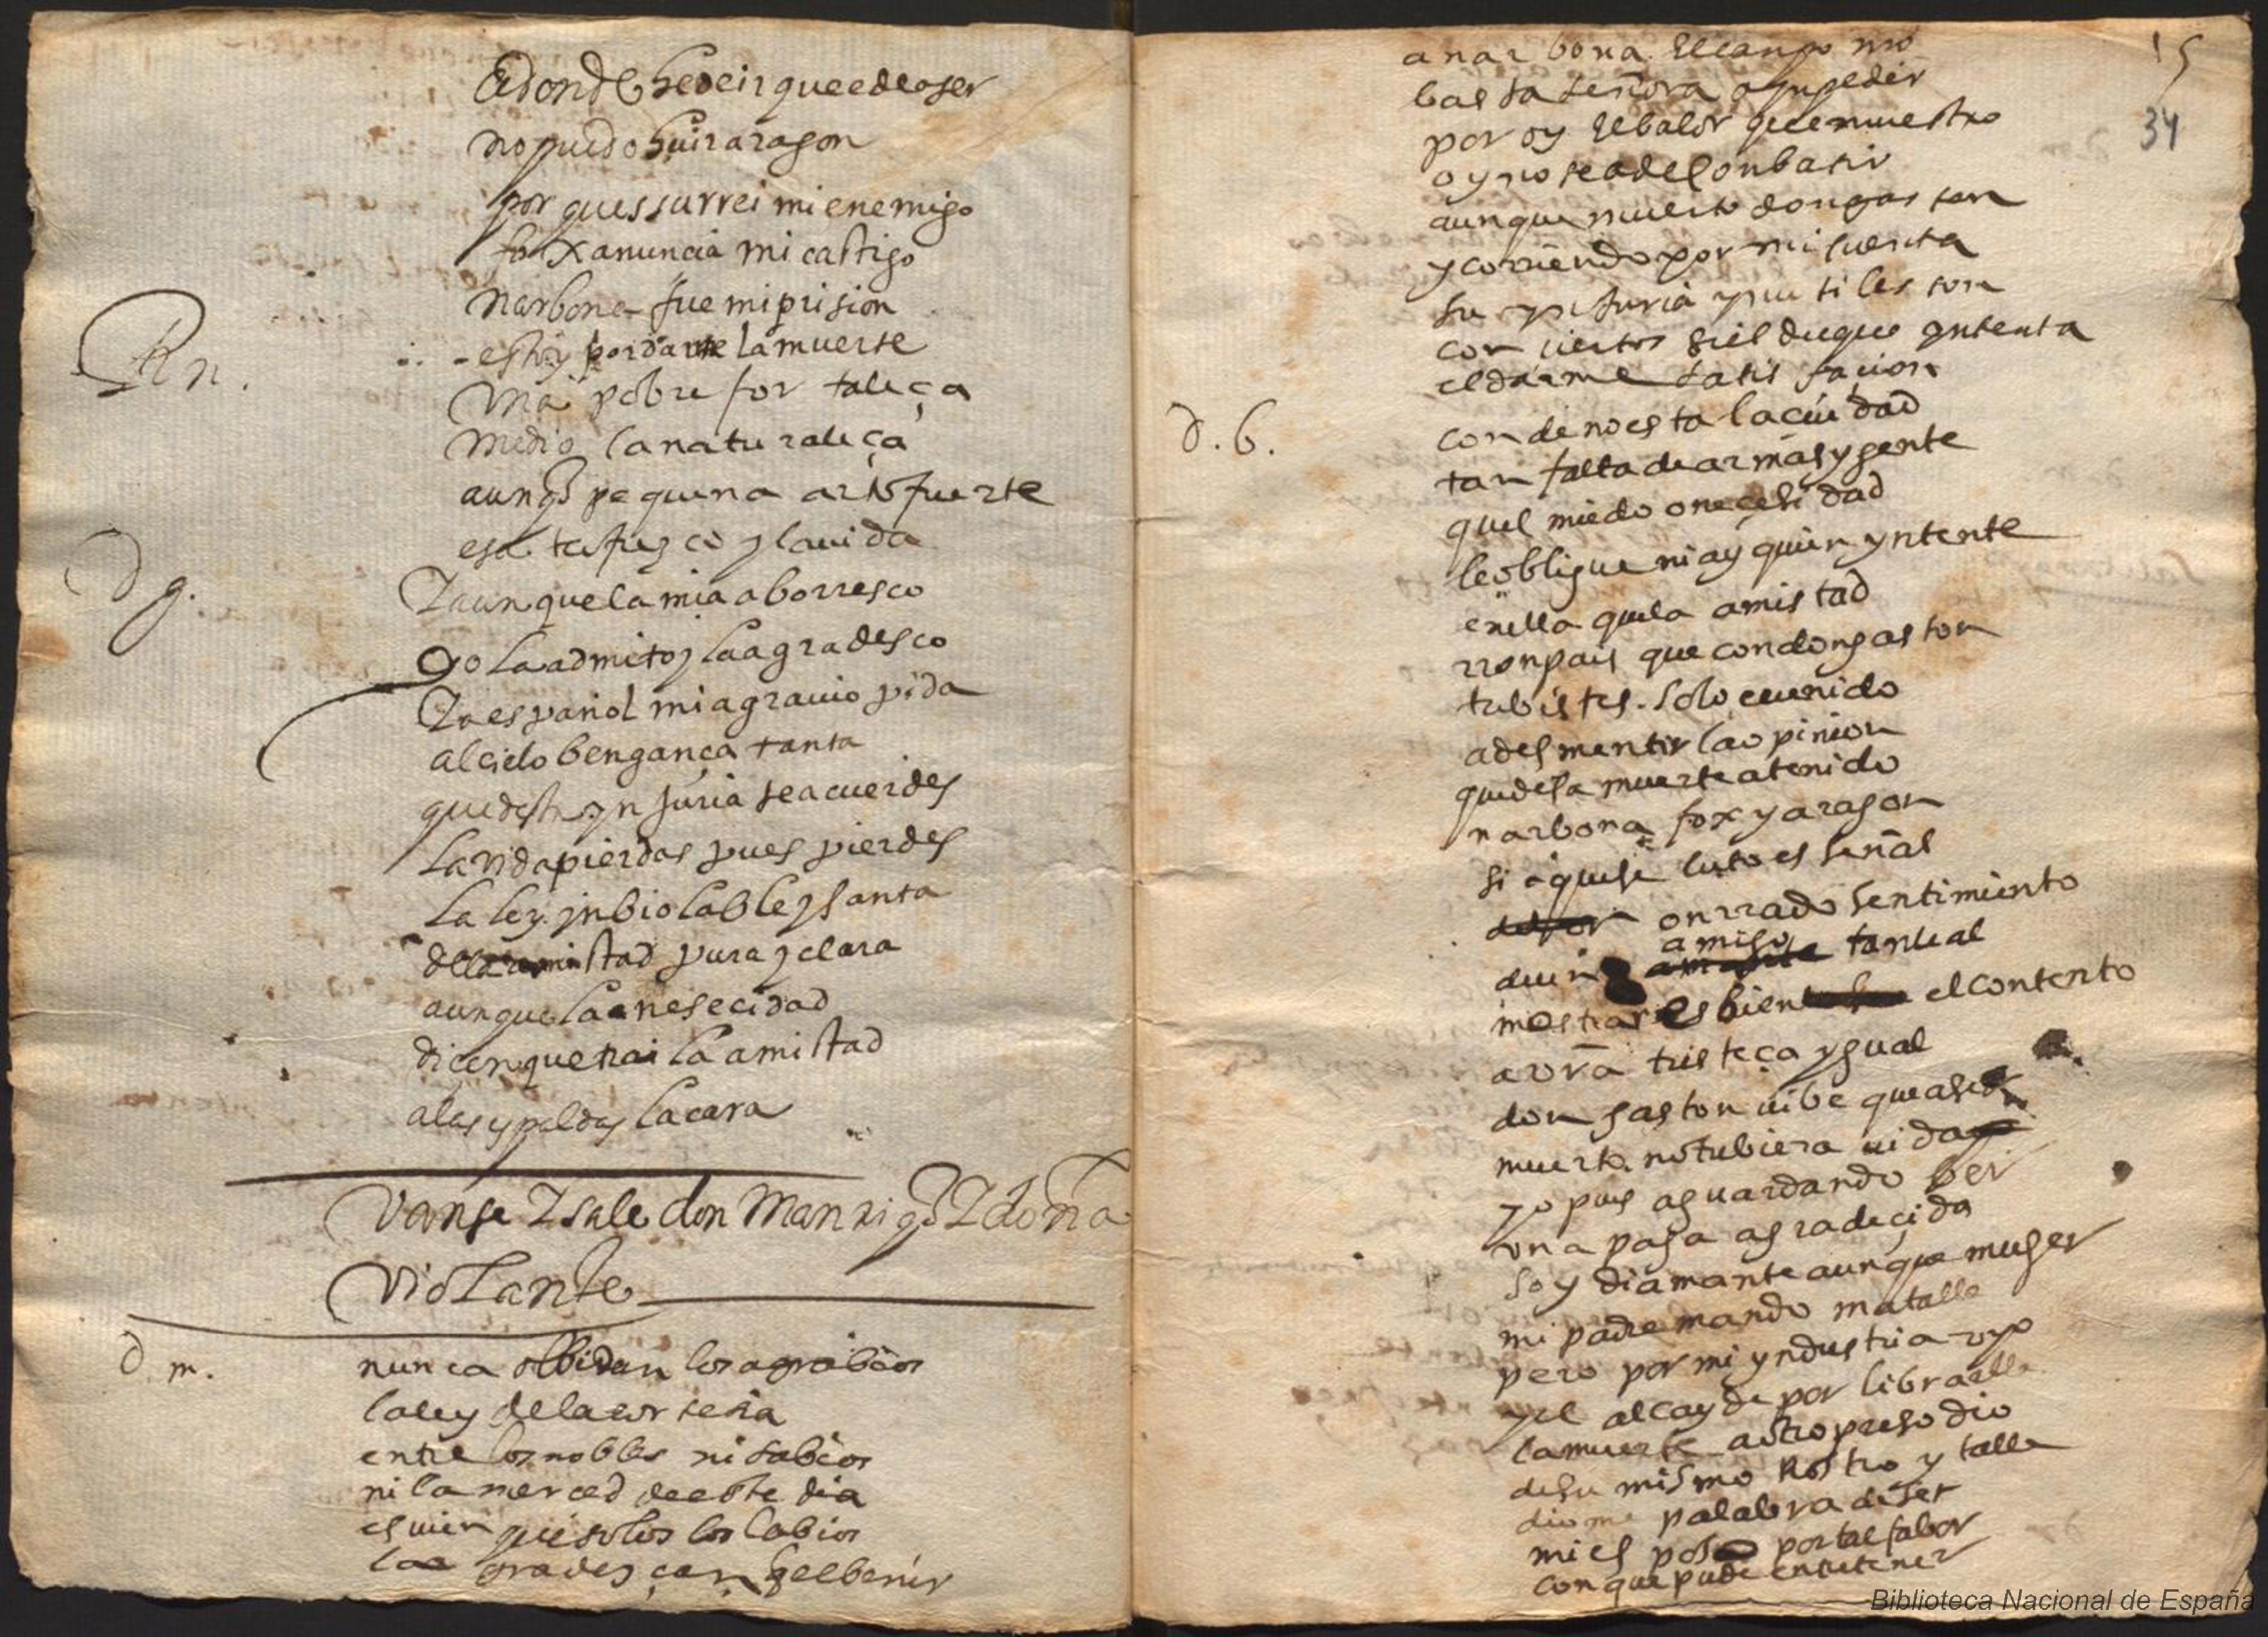 Adonde he de ir que e de aser
no puedo huir a ragon
por ques su rrei mi enemigo
fox anuncia mi castigo
narbona fue mi prision
estoy por darme la muerte
Rn. Una pobre fortaleça
me dio la naturaleça
aunq̃ pequena arto fuerte
esa te ofrezco y la uida
d g. Y aunque la mia aborresco
yo la admito y la agradesco
Y a español mi agrauio pida
al cielo bengança tanta
que desta ynjuria te acuerdes
la vida pierdas pues pierdes
la ley ynbiolable y santa
de la amistad pura y clara
aunque la nesecidad
dicen que trai la amistad
a las espaldas la cara
Vanse Y sale don Manriq̃ Y doña
Violante
d. m. nunca olbidan los agrabios
la ley de la cortesia
entre los nobles ni sabios
ni la merced de este dia
es bien que solos los labios
la agradescan q el benir
15
34
a narbona. El canpo mio
basta señora a ynpedir
por oy el balor que muestro
oy no sea de conbatir
aunque muerto don gaston
y corriendo por mi cuenta
su ynjuria ynutiles son
conciertos si el duque yntenta
el darme satisfacion
d. b. conde no esta la ciudad
tan falta de armas y gente
quel miedo o necesidad
le obligue ni ay quien yntente
en ella que la amistad
rronpais que con don gaston
tubistes. solo e uenido
a desmentir la opinion
que de su muerte a tenido
narbona fox y aragon
si aquese luto es señal
de onrrado sentimiento
de un amigo tan leal
mostrar es bien el contento
aora tristeça ygual
don gaston uibe que a ser
muerto no tubiera uida
yo pues aguardando ber
una paga agradecida
soy diamante aunque muger
mi padre mando matalle
pero por mi yndustria uyo
y el alcayde por libralle
la muerte a otro preso dio
de su mismo Rostro y talle
diome palabra de ser
mi esposo por tal fabor
con que pude entretener
Biblioteca Nacional de España